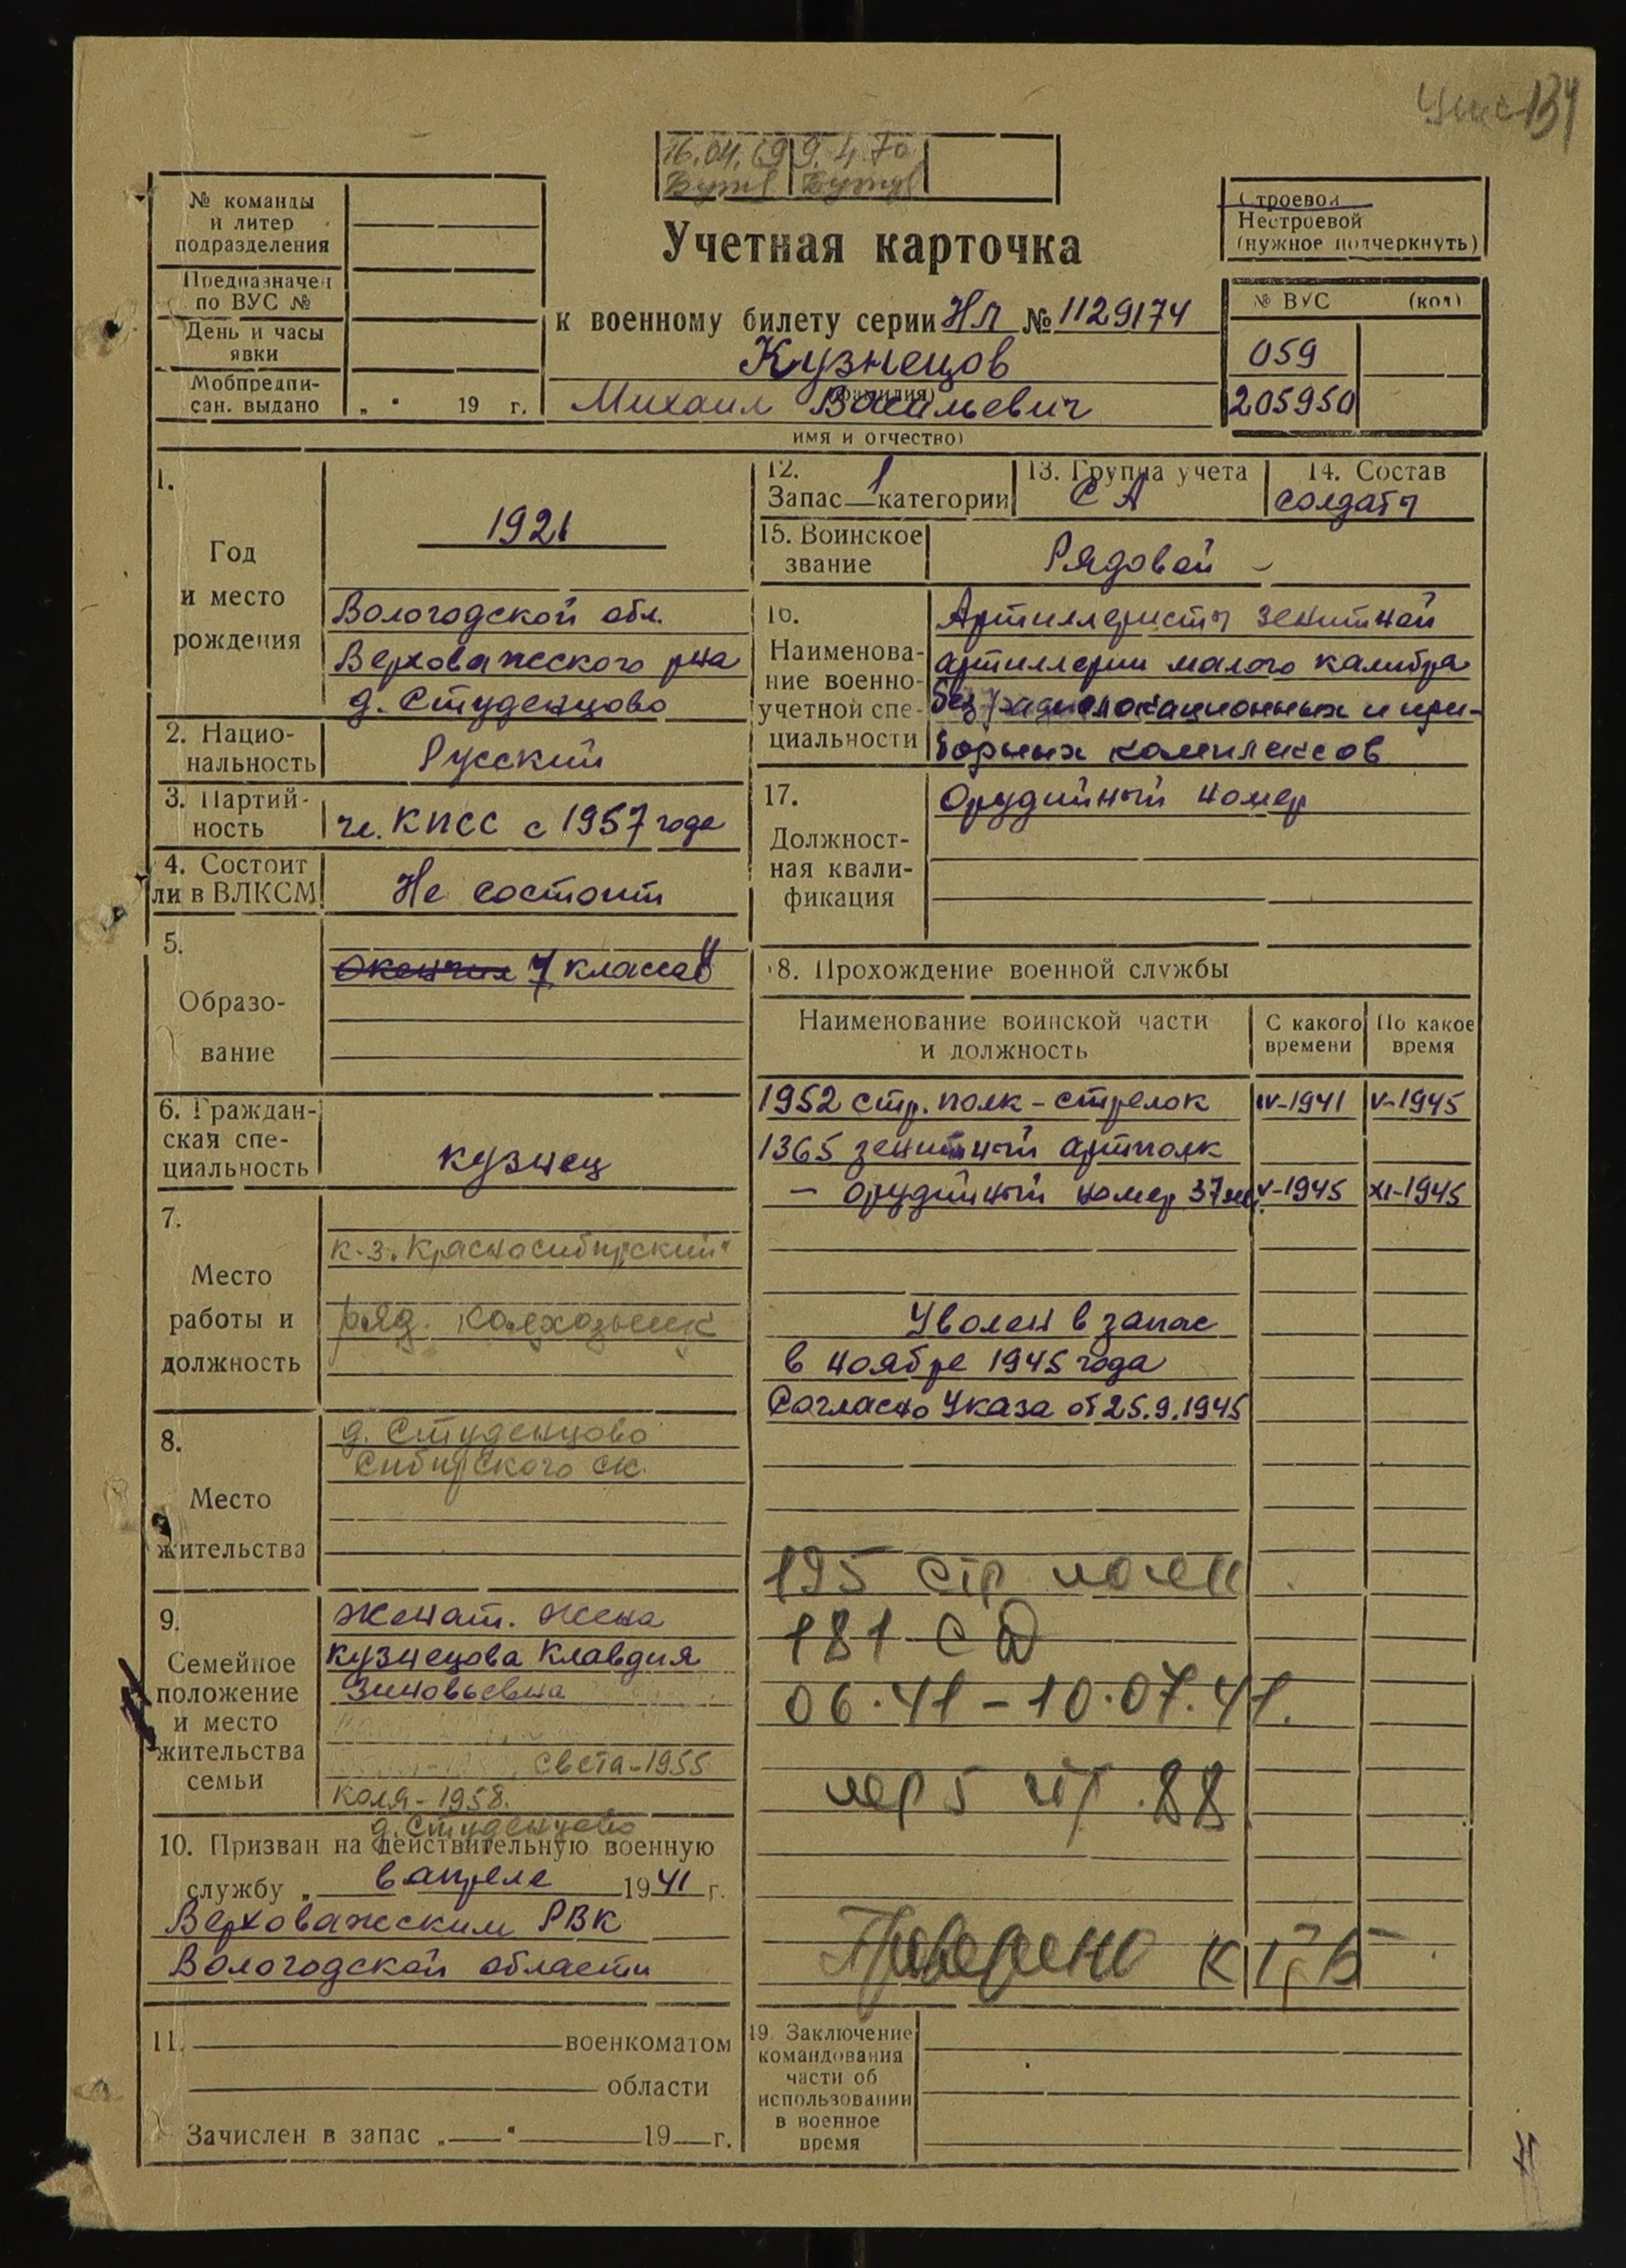 134
16.04.69 9.4.70
№ команды
и литер
подразделения
Предназначен
по ВУС №
День и часы
явки
Мобпредпи-
сан. выдано „ “ 19 г.
Учетная карточка
к военному билету серии Нл № 1129174
Кузнецов
(фамилия)
Михаил Васильевич
имя и отчество)
Строевой
Нестроевой
(нужное подчеркнуть)
№ ВУС (код)
059
205950
1.
Год
и место
рождения
1921
Вологодской обл.
Верховажского р-на
д. Студенцово
2. Нацио-
нальность
Русский
3. Партий-
ность
чл. КПСС с 1957 года
4. Состоит
ли в ВЛКСМ
Не состоит
5.
Образо-
вание
Окончил 4 класса
6. Граждан-
ская спе-
циальность
кузнец
7.
Место
работы и
должность
к-з. Красносибирский"
ряд. колхозник
8.
Место
жительства
д. Студенцово
Сибирского ск.
9.
Семейное
положение
и место
жительства
семьи
женат. жена
Кузнецова Клавдия
Зиновьевна
Света-1955
Коля-1958.
д. Студенцово
10. Призван на действительную военную
службу „ в апреле 1941 г.
Верховажским РВК
Вологодской области
11. военкоматом
области
Зачислен в запас „ “ 19 г.
12.
Запас 1 категории
13. Группа учета
СА
14. Состав
солдаты
15. Воинское
звание
Рядовой -
16.
Наименова-
ние военно-
учетной спе-
циальности
Артиллеристы зенитной
артиллерии малого калибра
без радиолокационных и при-
борных комплексов
17.
Должност-
ная квали-
фикация
Орудийный номер
18. Прохождение военной службы
Наименование воинской части
и должность
С какого
времени
По какое
время
1952 стр. полк - стрелок IV-1941 V-1945
1365 зенитный артполк
- орудийный номер 37мм. V-1945 XI-1945
Уволен в запас
в ноябре 1945 года
Согласно Указа от 25.9.1945
195 стр полк
181 СД
06.41-10.07.41.
пер 5 стр. 88
Проверено КГБ
19. Заключение
командования
части об
использовании
в военное
время